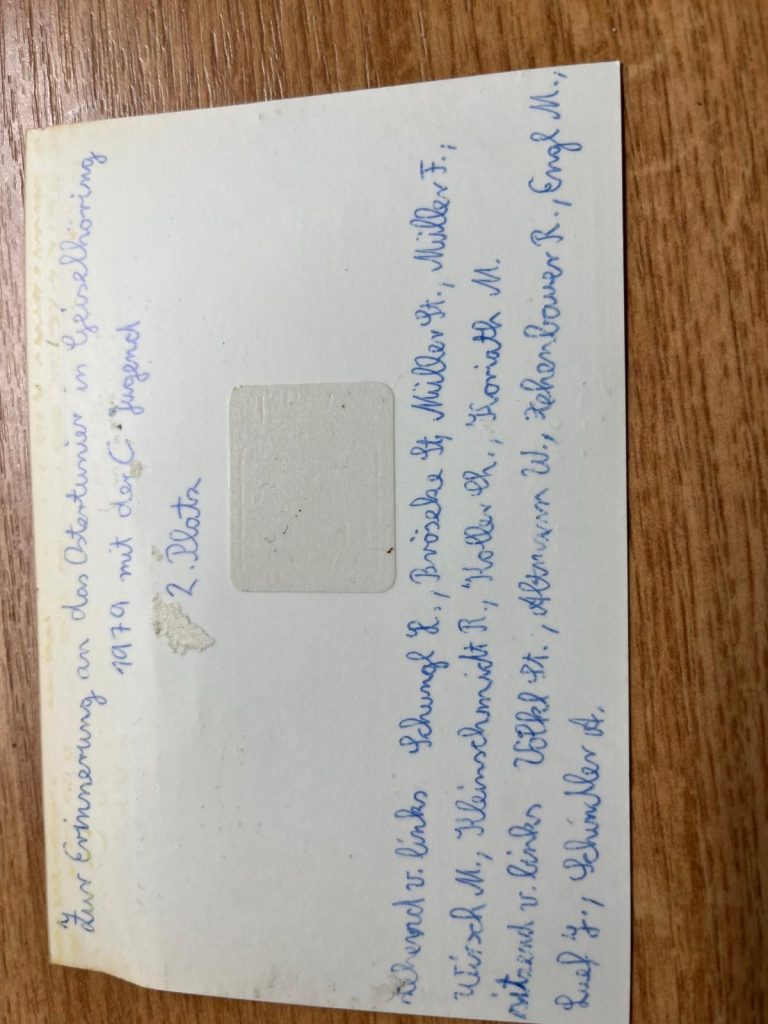 Zur Erinnerung an das Osterturnier in Geiselhöring
1979 mit der C Jugend
2. Platz
stehend v. links Schungl H., Bröseke St, Müller St., Müller F.,
Wirsch M., Kleinschmidt R., Koller Ch., Koriath M.
sitzend v. links Völkl St., Altmann W., Zehenbauer R., Engl M.,
Luef J., Schindler A.